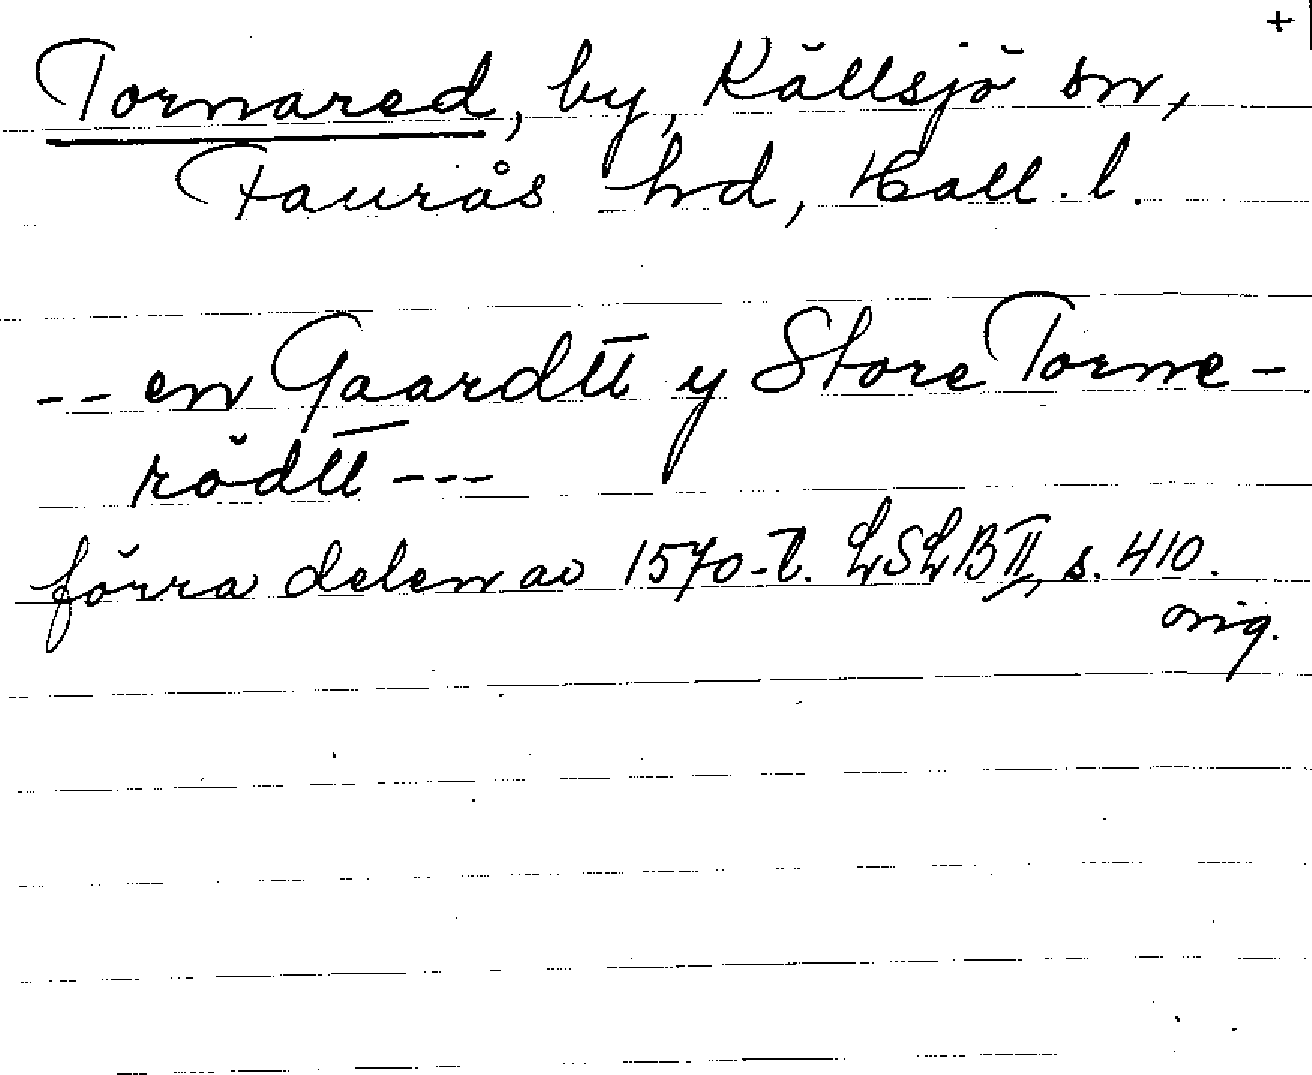 +
Tornared, by, Källsjö sn,
Faurås hd, Hall. l.
-- en Gaardtt y Store Torne-
rödtt ---
förra delen av 1570-t. LSLB II, s. 410.
orig.